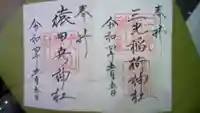 奉拝
三光稲荷神社
令和四年五月五日
奉拝
猿田彦神社
令和四年五月五日